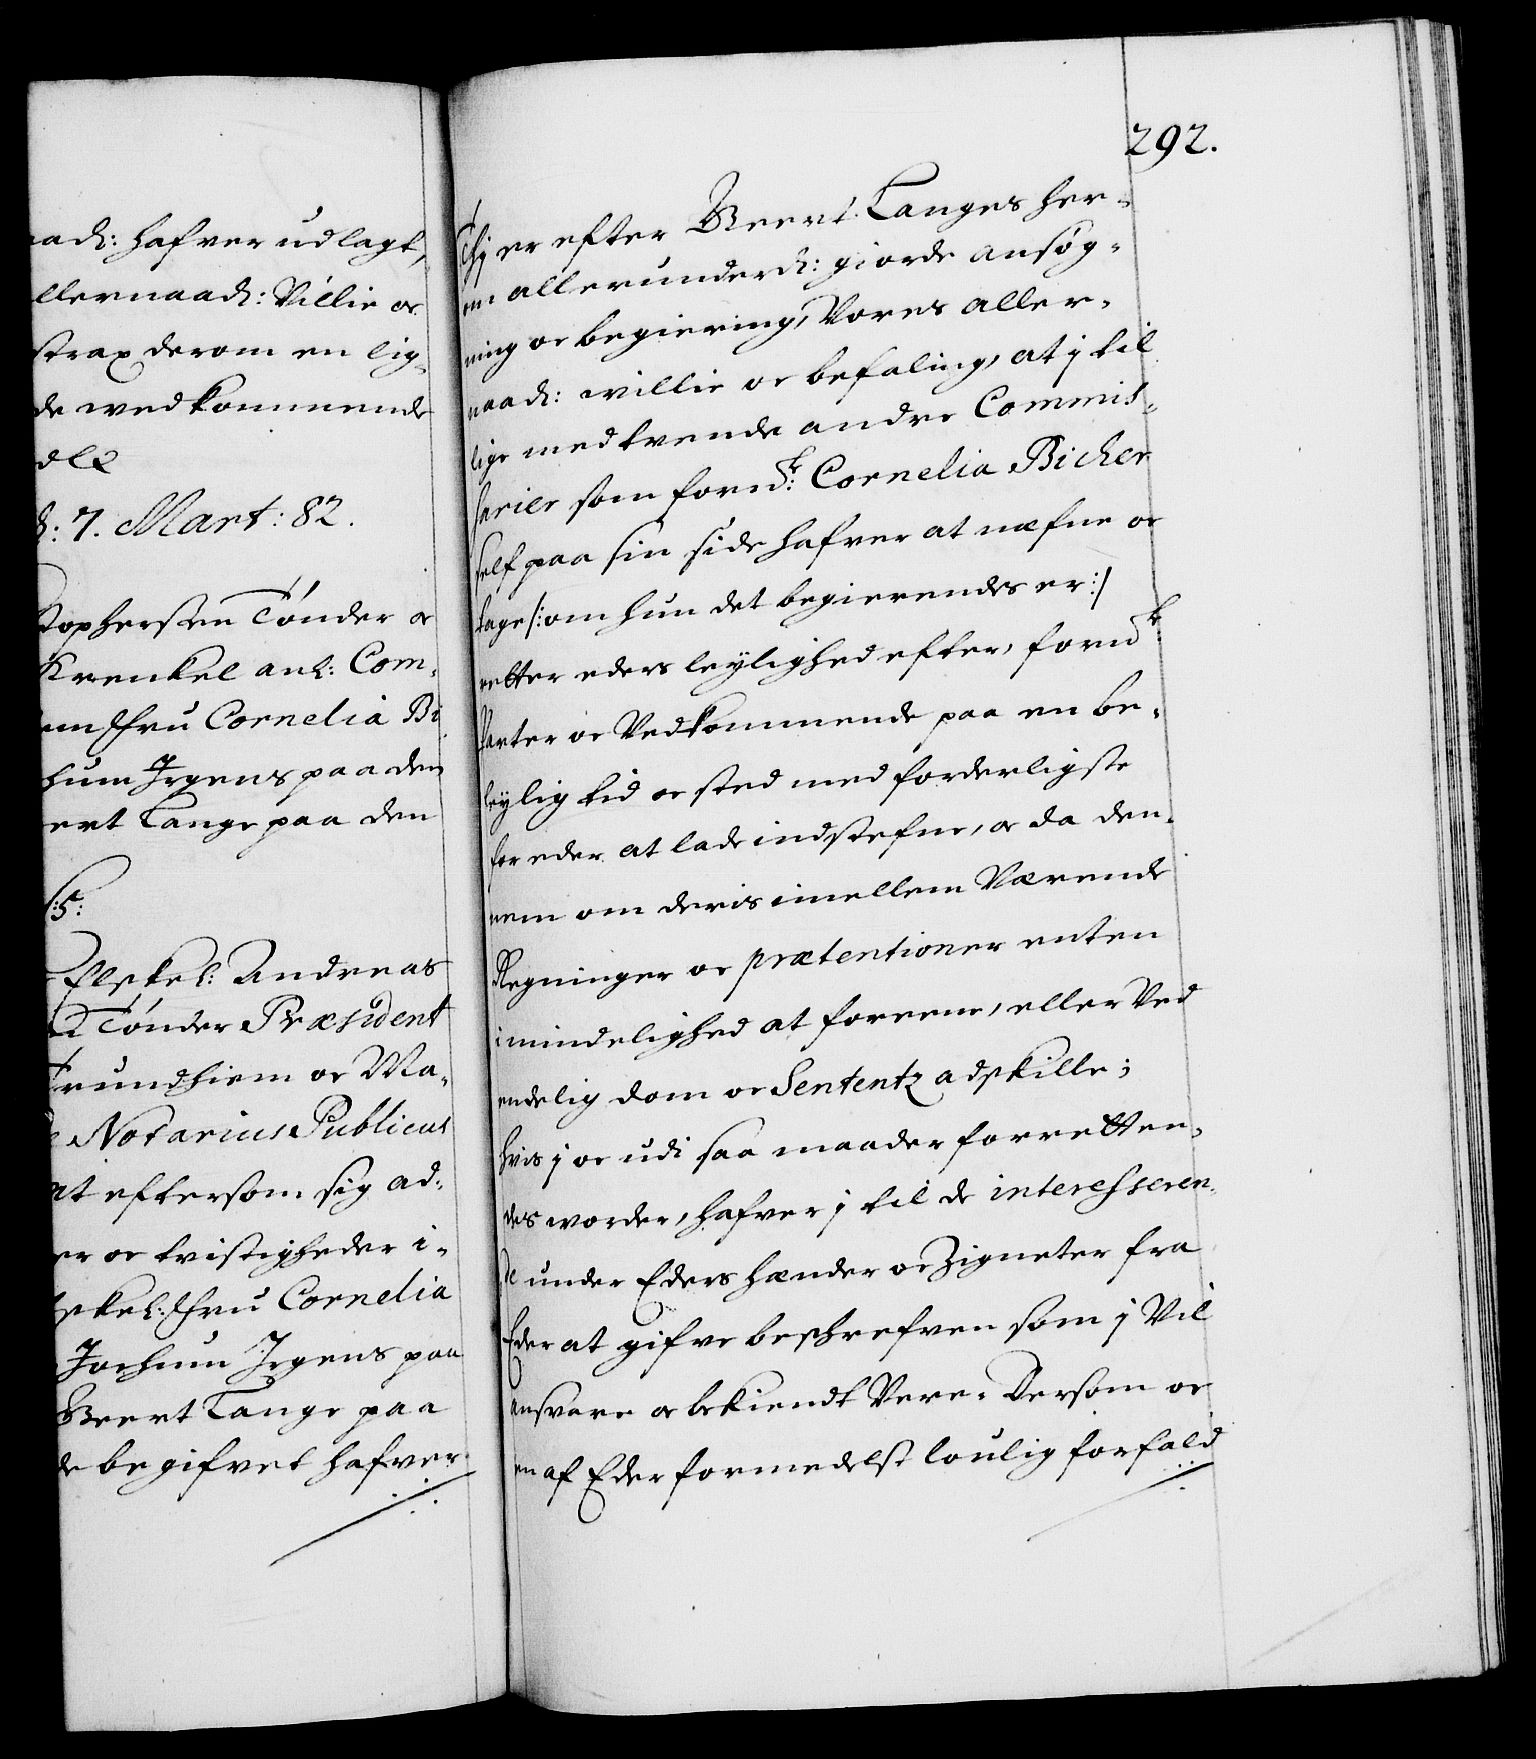 aad: hafver udlagt,
llernaad: Villie oc
strax derom en lig-
de wedkommende
d: 7. Mart: 82.
Tønder oc
Krenkel anl: Com-
fru Cornelia Bi
hum Jrgens paa den
ert Lange paa den
Elskel: Andreas
Tønder Præsident
Trundhiem oc Ma-
Notarius Publicus
at eftersom sig ad-
er oc tvistigheder i-
skel: fru Cornelia
Jochum Jrgens paa
Beert Lange paa
de begifvet hafver
292.
Thj er efter Beert Langes her-
om allerunderd: giorde ansøg-
ning oc begiering, Vores aller-
naad: willie oc befaling, at j til
lige med tvende andre Commis-
sarier som fornd: Cornelia Bicker
self paa sin side hafver at nefne oc
tage /: om hun det begierendes er :/
retter eders leylighed efter, fornd:
Parter oc Vedkommende paa en be-
leylig tid oc sted med forderligste
for eder at lade indstefne, oc da den-
nem om deris imellem Værende
Regninger oc prætentioner enten
i mindelighed at foreene, eller Ved
endelig dom oc Sententz adskille;
hvis j oc udi saa maader forretten-
des worder, hafver j til de interesseren-
de under Eders hænder oc Zigneter fra
Eder at gifve beskrefven som j Vil
ansvare oc bekiendt Vere. Dersom oc
en af Eder formedelst loulig forfald